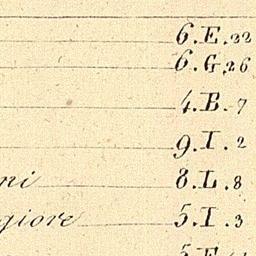 6.E.32
6.G.26
4.B.7
9.I.2
ni 8.L.8
giore 5.I.3